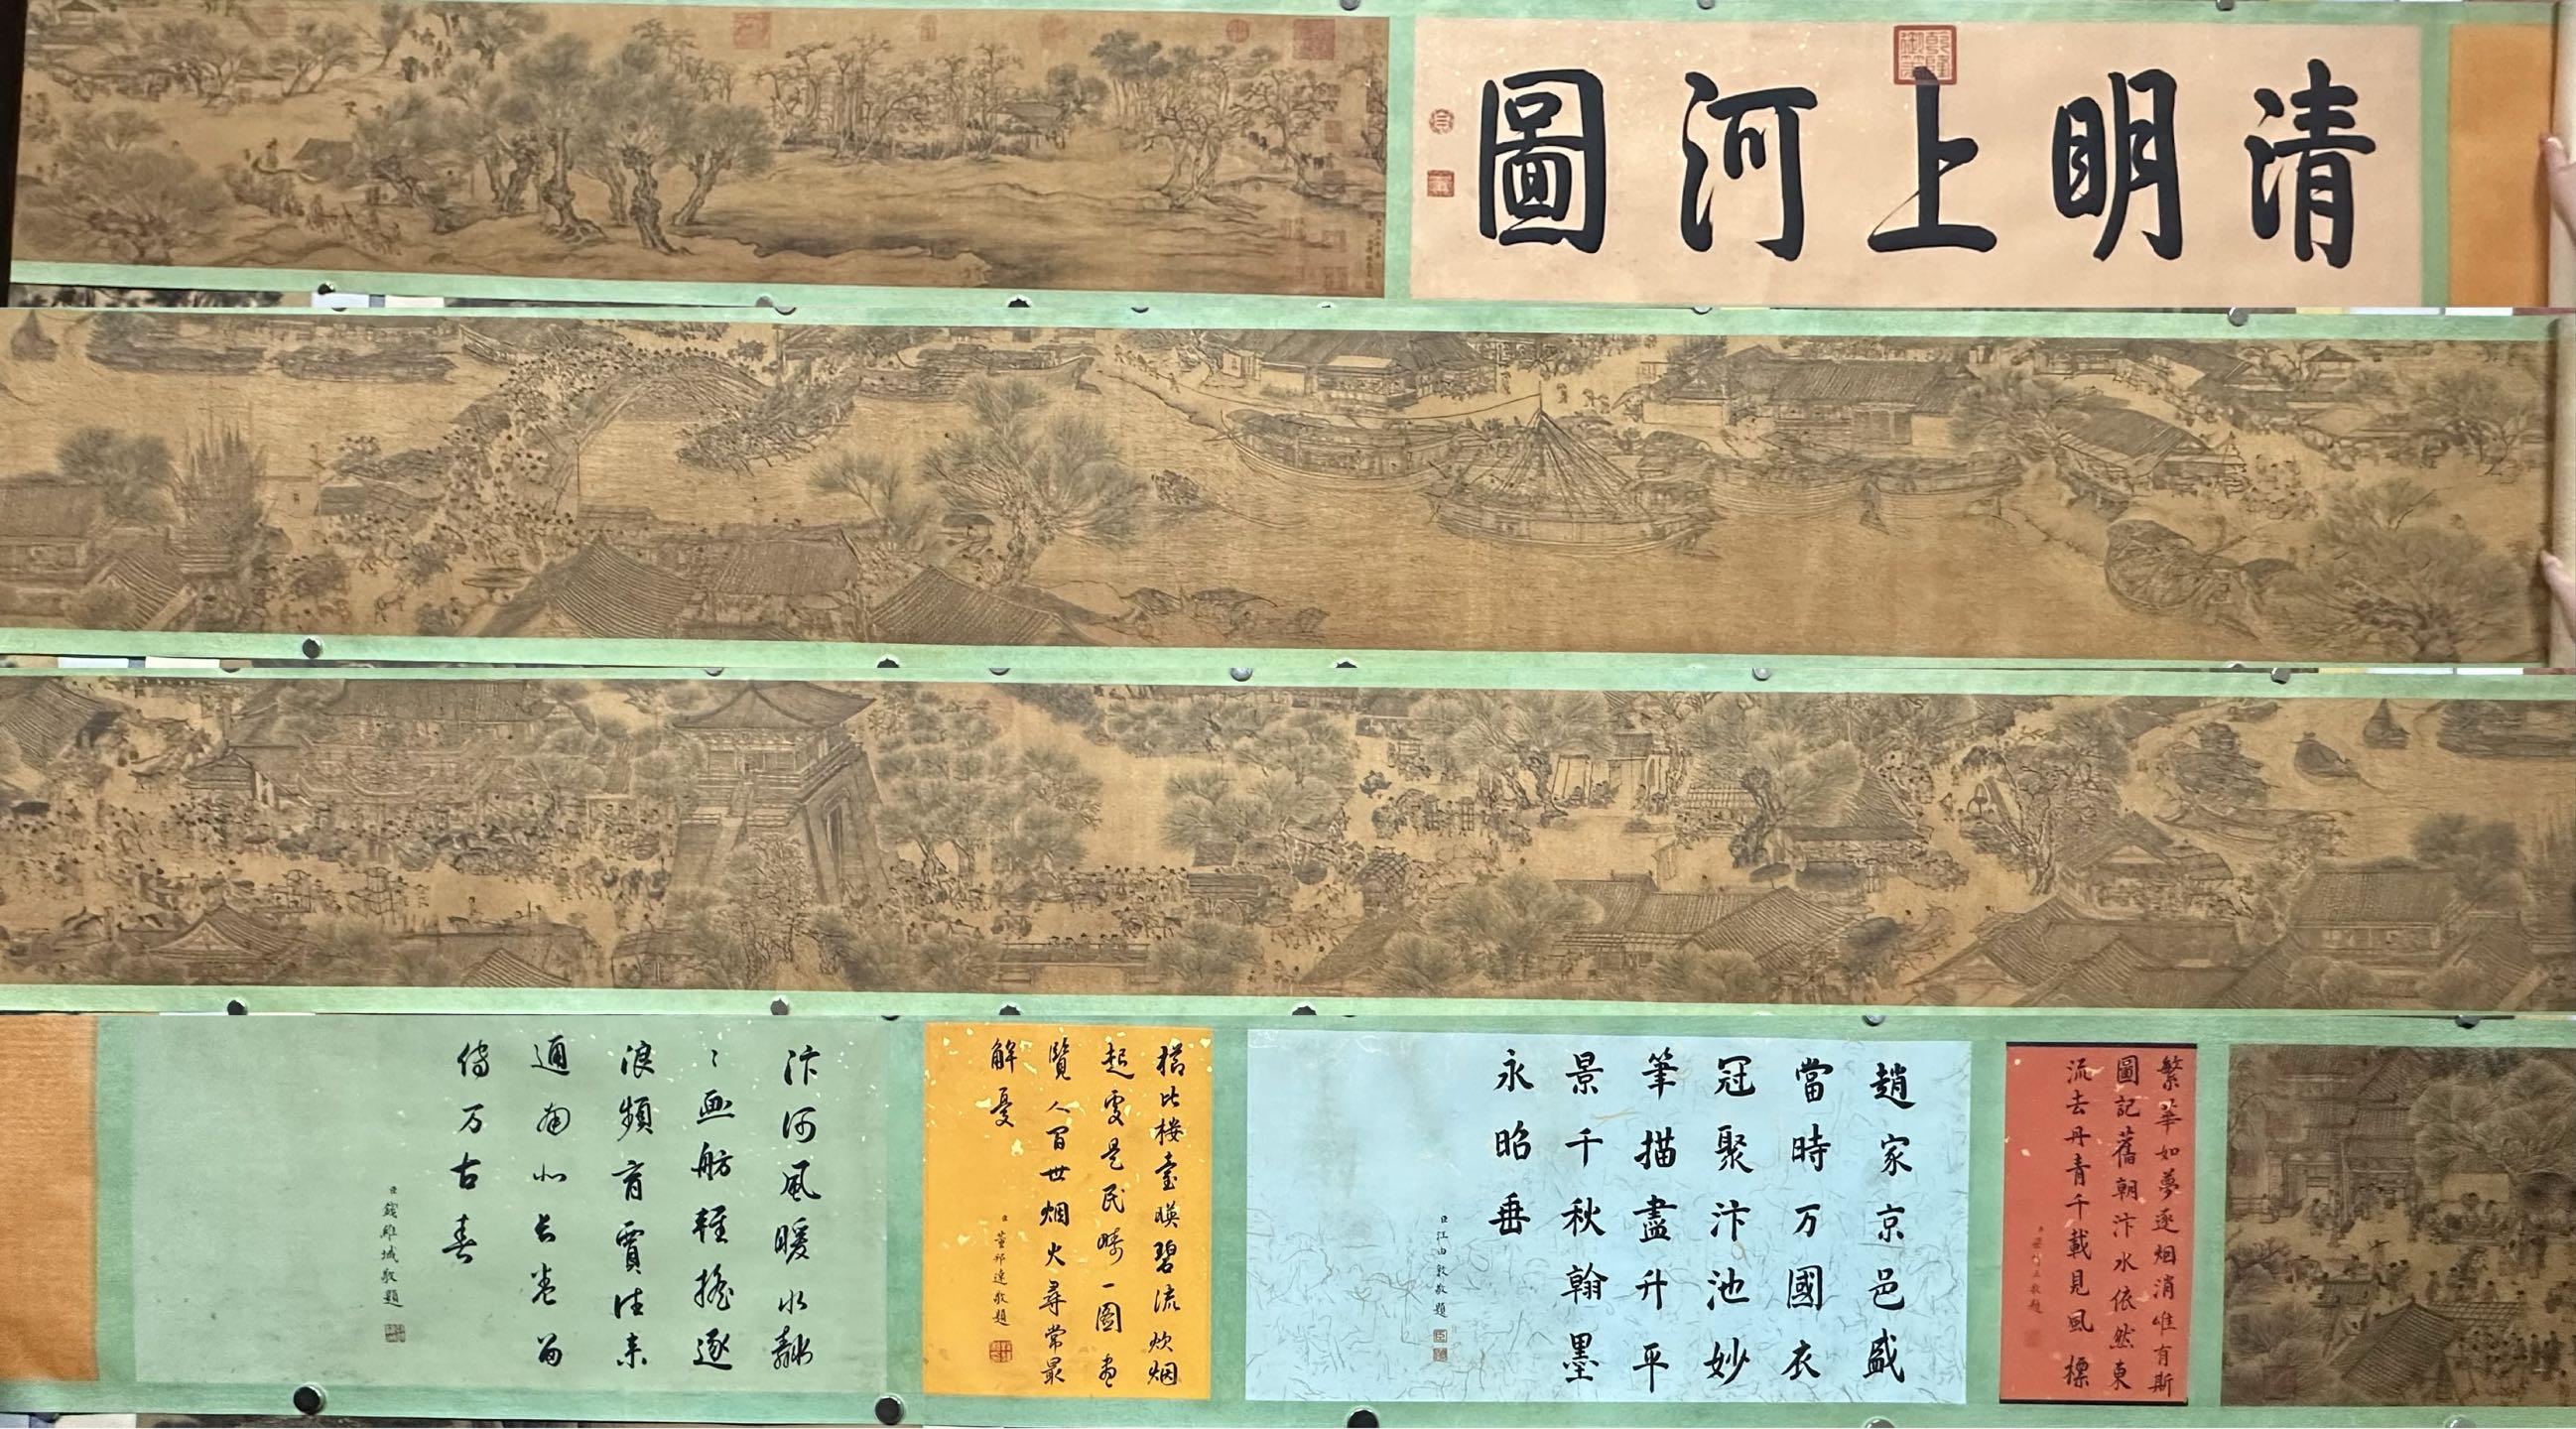 清明上河圖
乾隆御筆
繁華如夢逐烟消唯有斯
圖記舊朝汴水依然東
流去丹青千載見風標
趙家京邑盛
當時万國衣
冠聚汴池妙
筆描盡升平
景千秋翰墨
永昭垂
臣汪由敦敬題
樓臺暎碧流炊烟
起處是民疇一圖盡
覽人間世烟火尋常最
解憂
臣董邦達敬題
汴河風暖水粼
〻畫舫輕搖逐
浪頻商賈往来
通南北長卷留
傳万古春
臣錢維城敬題